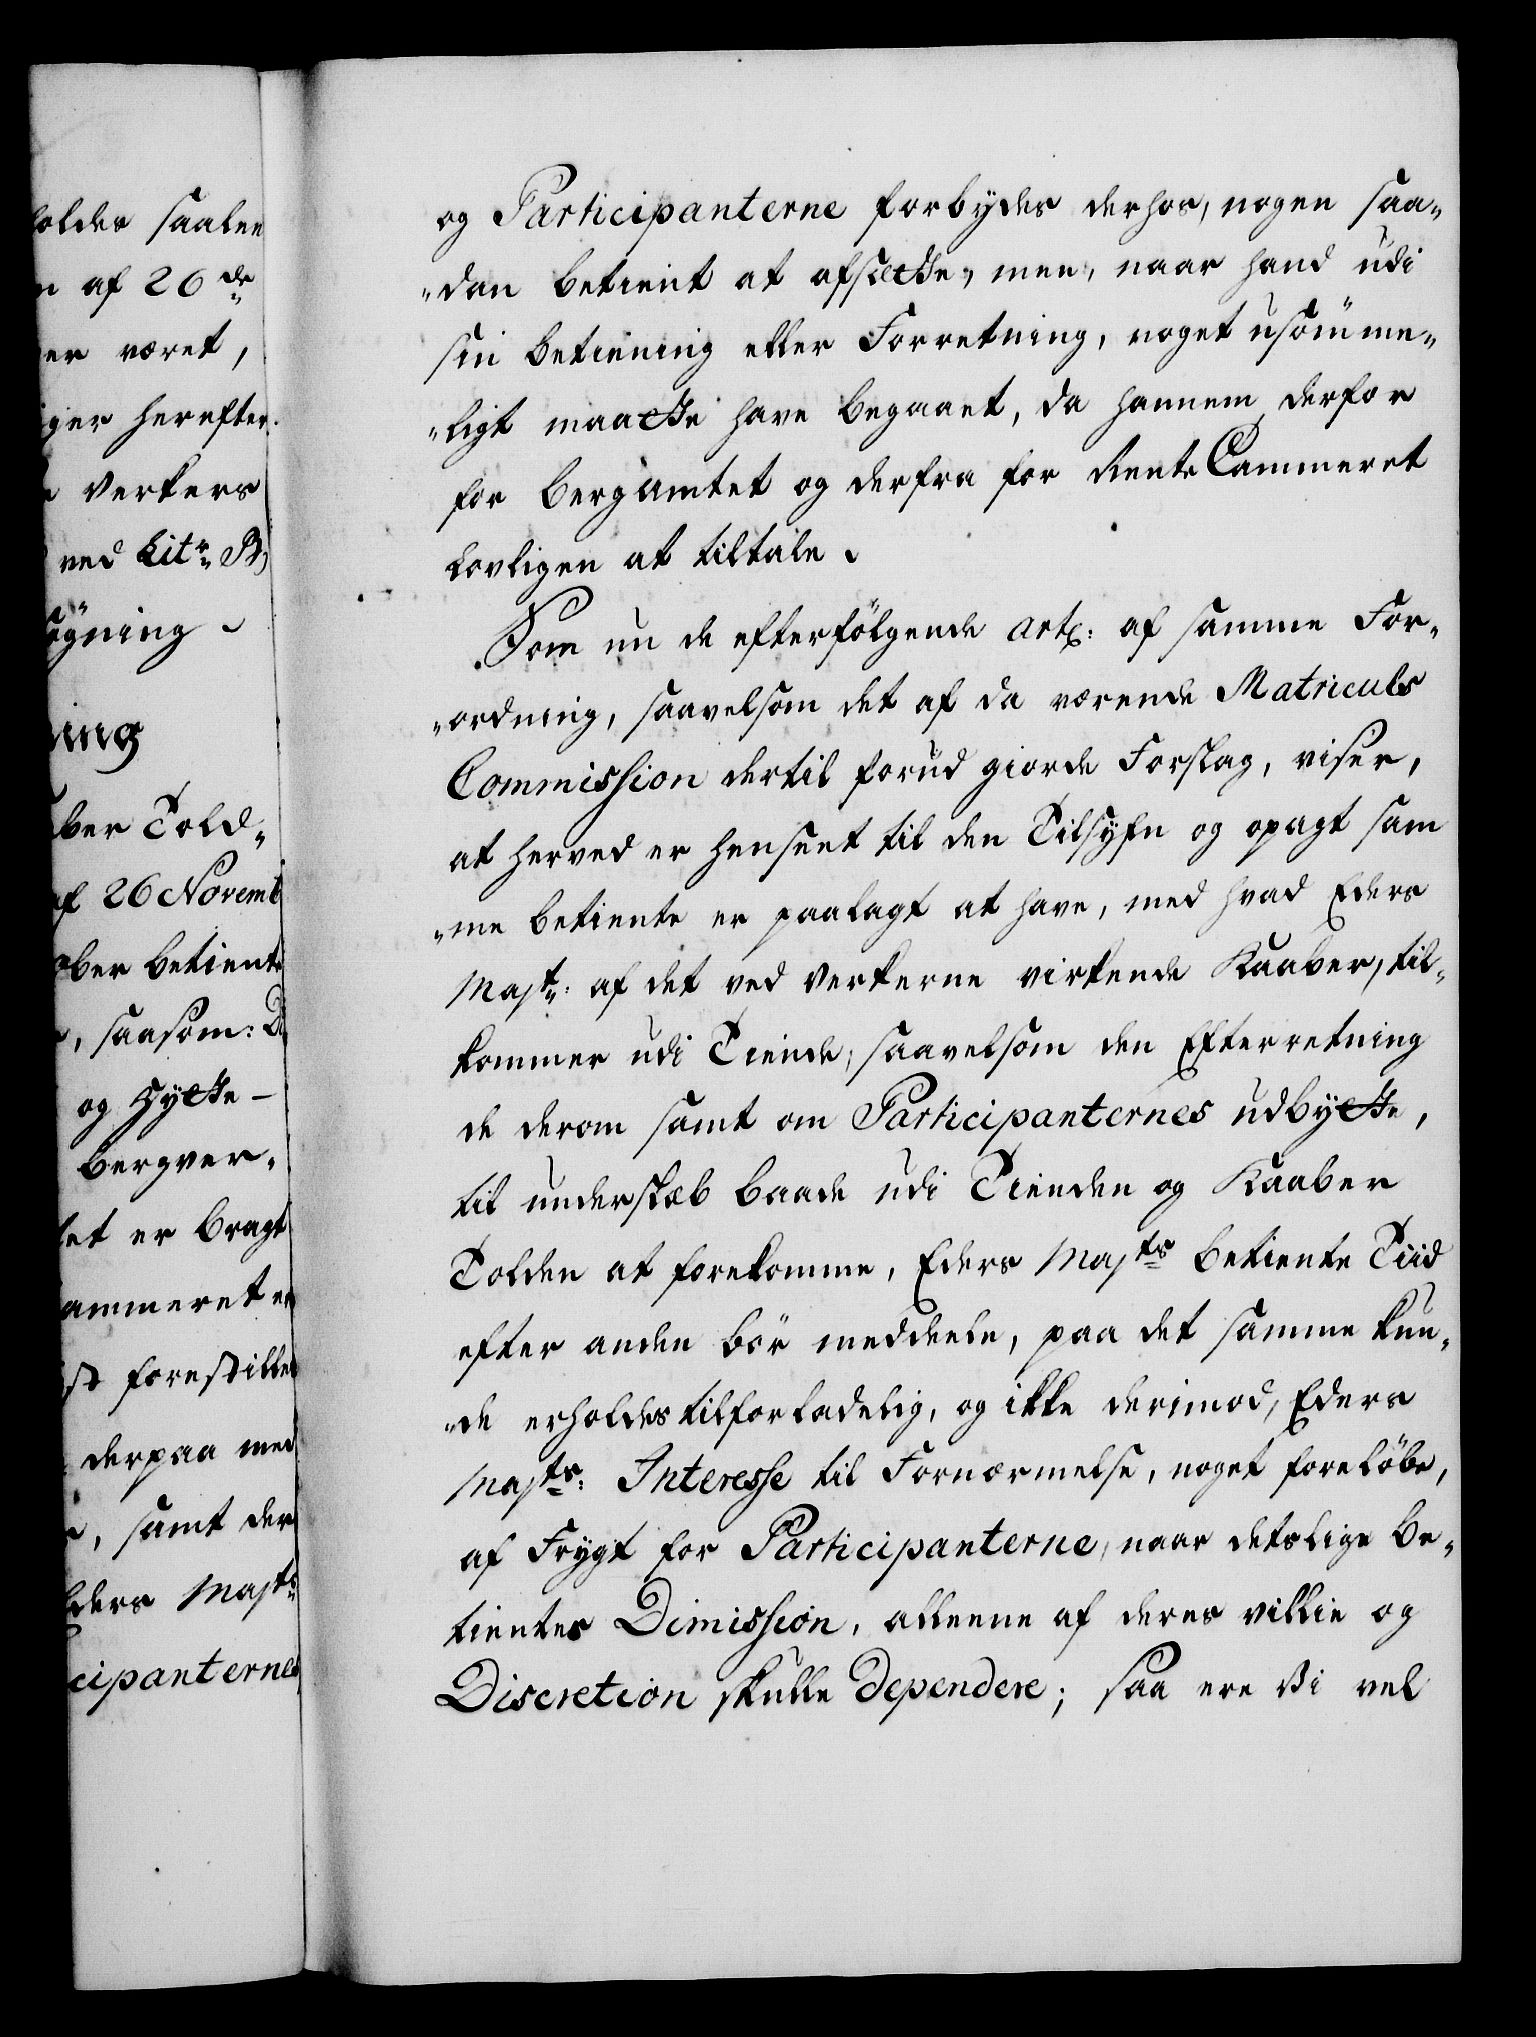 holdes saalen
n af 26de
er været,
iger herefter.
e Verkers
ved Litr: B,
søgning
ning
aber Told-
af 26 Novemb
ober betiente
, saasom: D
og Hytte-
bergver-
let er bragt
ammeret er
st forestillet
derpaa med
, samt der
Eders Majts
cipanternes
og Participanterne forbydes derhos, nogen saa-
-dan betient at afsætte, men, naar hand udi
sin betiening eller Forretning, noget usømme-
-ligt maatte have begaaet, da hannem derfor
for bergamtet og derfra for Rente Cammeret
Lovligen at tiltale.
Som nu de efterfölgende art: af samme For-
-ordning, saavelsom det af da værende Matriculs
Commission dertil forud giorde Forslag, viser,
at herved er henseet til den Tilsyfn og opagt sam
-me betiente er paalagt at have, med hvad Eders
Majt: af det ved Verkerne virkende Kaaber, til-
kommer udi Tiende, saavelsom den Efterretning
de derom samt om Participanternes udbytte,
til underslæb baade udi Tienden og Kaaber
Tolden at forekomme, Eders Majts betiente Tiid
efter anden bör meddeele, paa det samme kun-
-de erholdes tilforladelig, og ikke derimod, Eders
Majts: Interesse til Fornærmelse, noget foreløbe,
af Frygt for Participanterne, naar detslige be-
tientes Dimission, alleene af deres villie og
Discretion skulle dependere; saa ere Vi vel